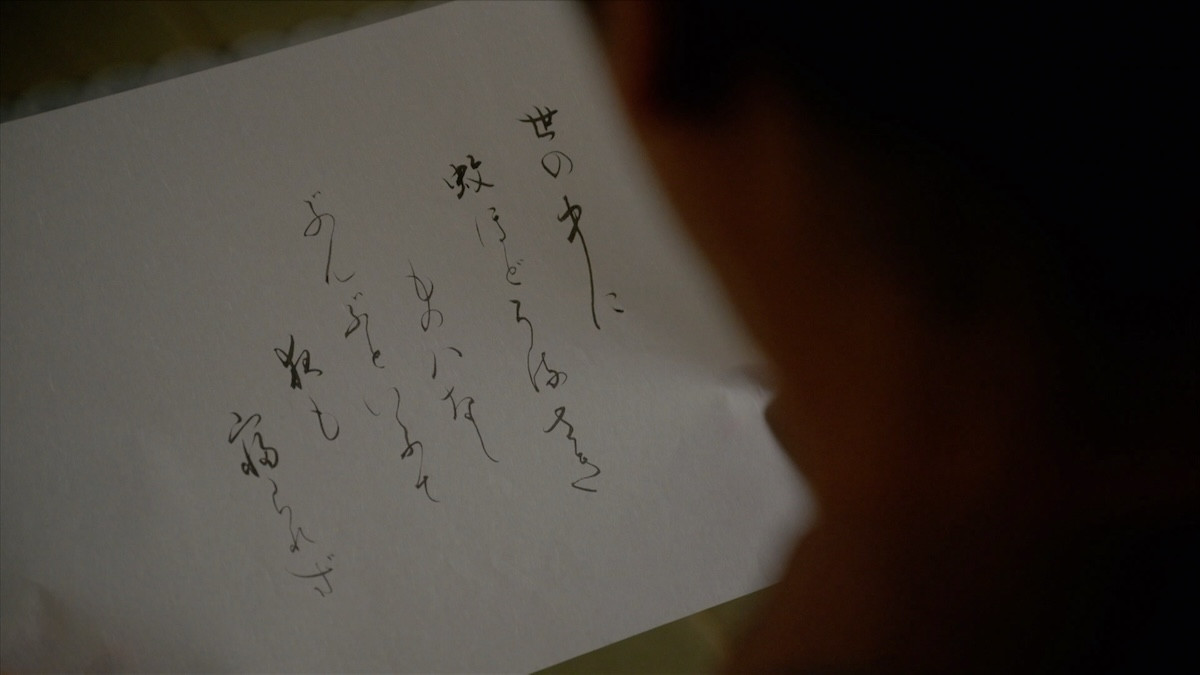 世の中に
蚊ほどうるさき
ものハなし
ぶんぶといふて
夜も
寝られず